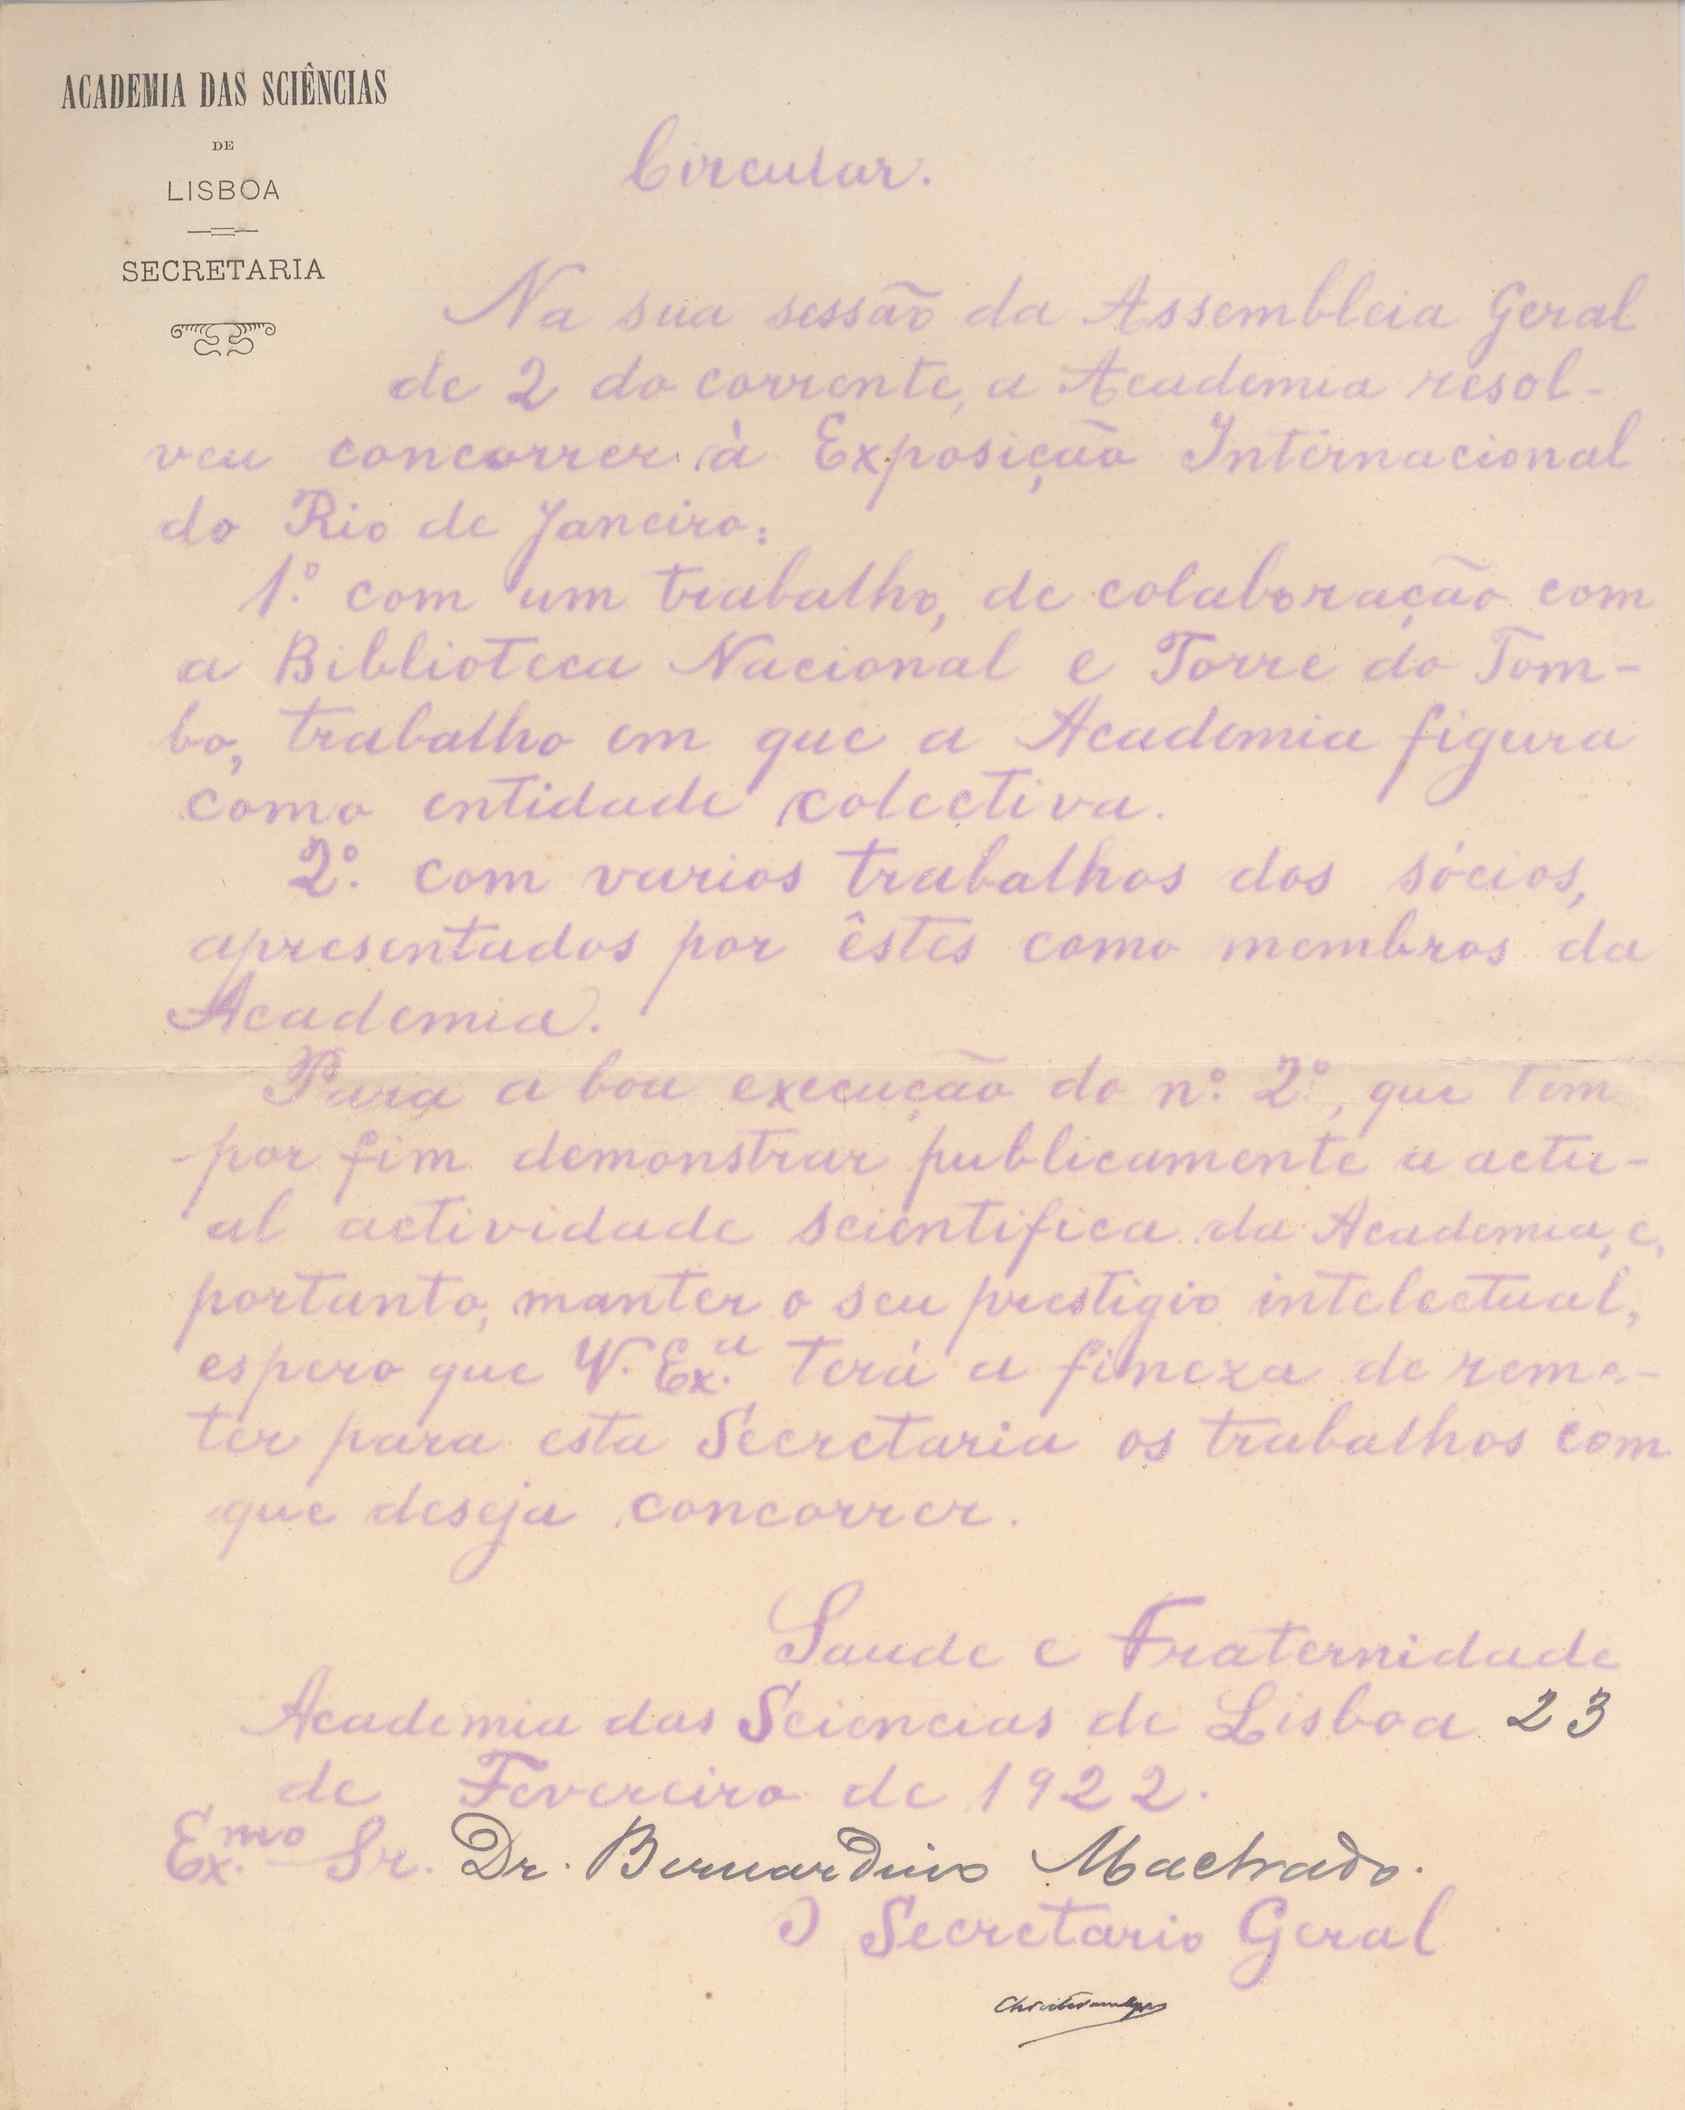 ACADEMIA DAS SCIÊNCIAS
DE
LISBOA
SECRETARIA
Circular.
Na sua sessão da Assembleia Geral
de 2 do corrente, a Academia resol-
veu concorrer à Exposição Internacional
do Rio de Janeiro:
1.º com um trabalho, de colaboração com
a Biblioteca Nacional e Torre do Tom-
bo, trabalho em que a Academia figura
como entidade colectiva.
2.º com varios trabalhos dos sócios,
apresentados por êstes como membros da
Academia.
Para a boa execução do n.º 2.º, que tem
por fim demonstrar publicamente a actu-
al actividade scientifica da Academia, e,
portanto, manter o seu prestigio intelectual,
espero que V. Ex.ª terá a fineza de reme-
ter para esta Secretaria os trabalhos com
que deseja concorrer.
Saude e Fraternidade
Academia das Sciencias de Lisboa 23
de Fevereiro de 1922.
Ex.mo Sr. Dr. Bernardino Machado.
O Secretario Geral